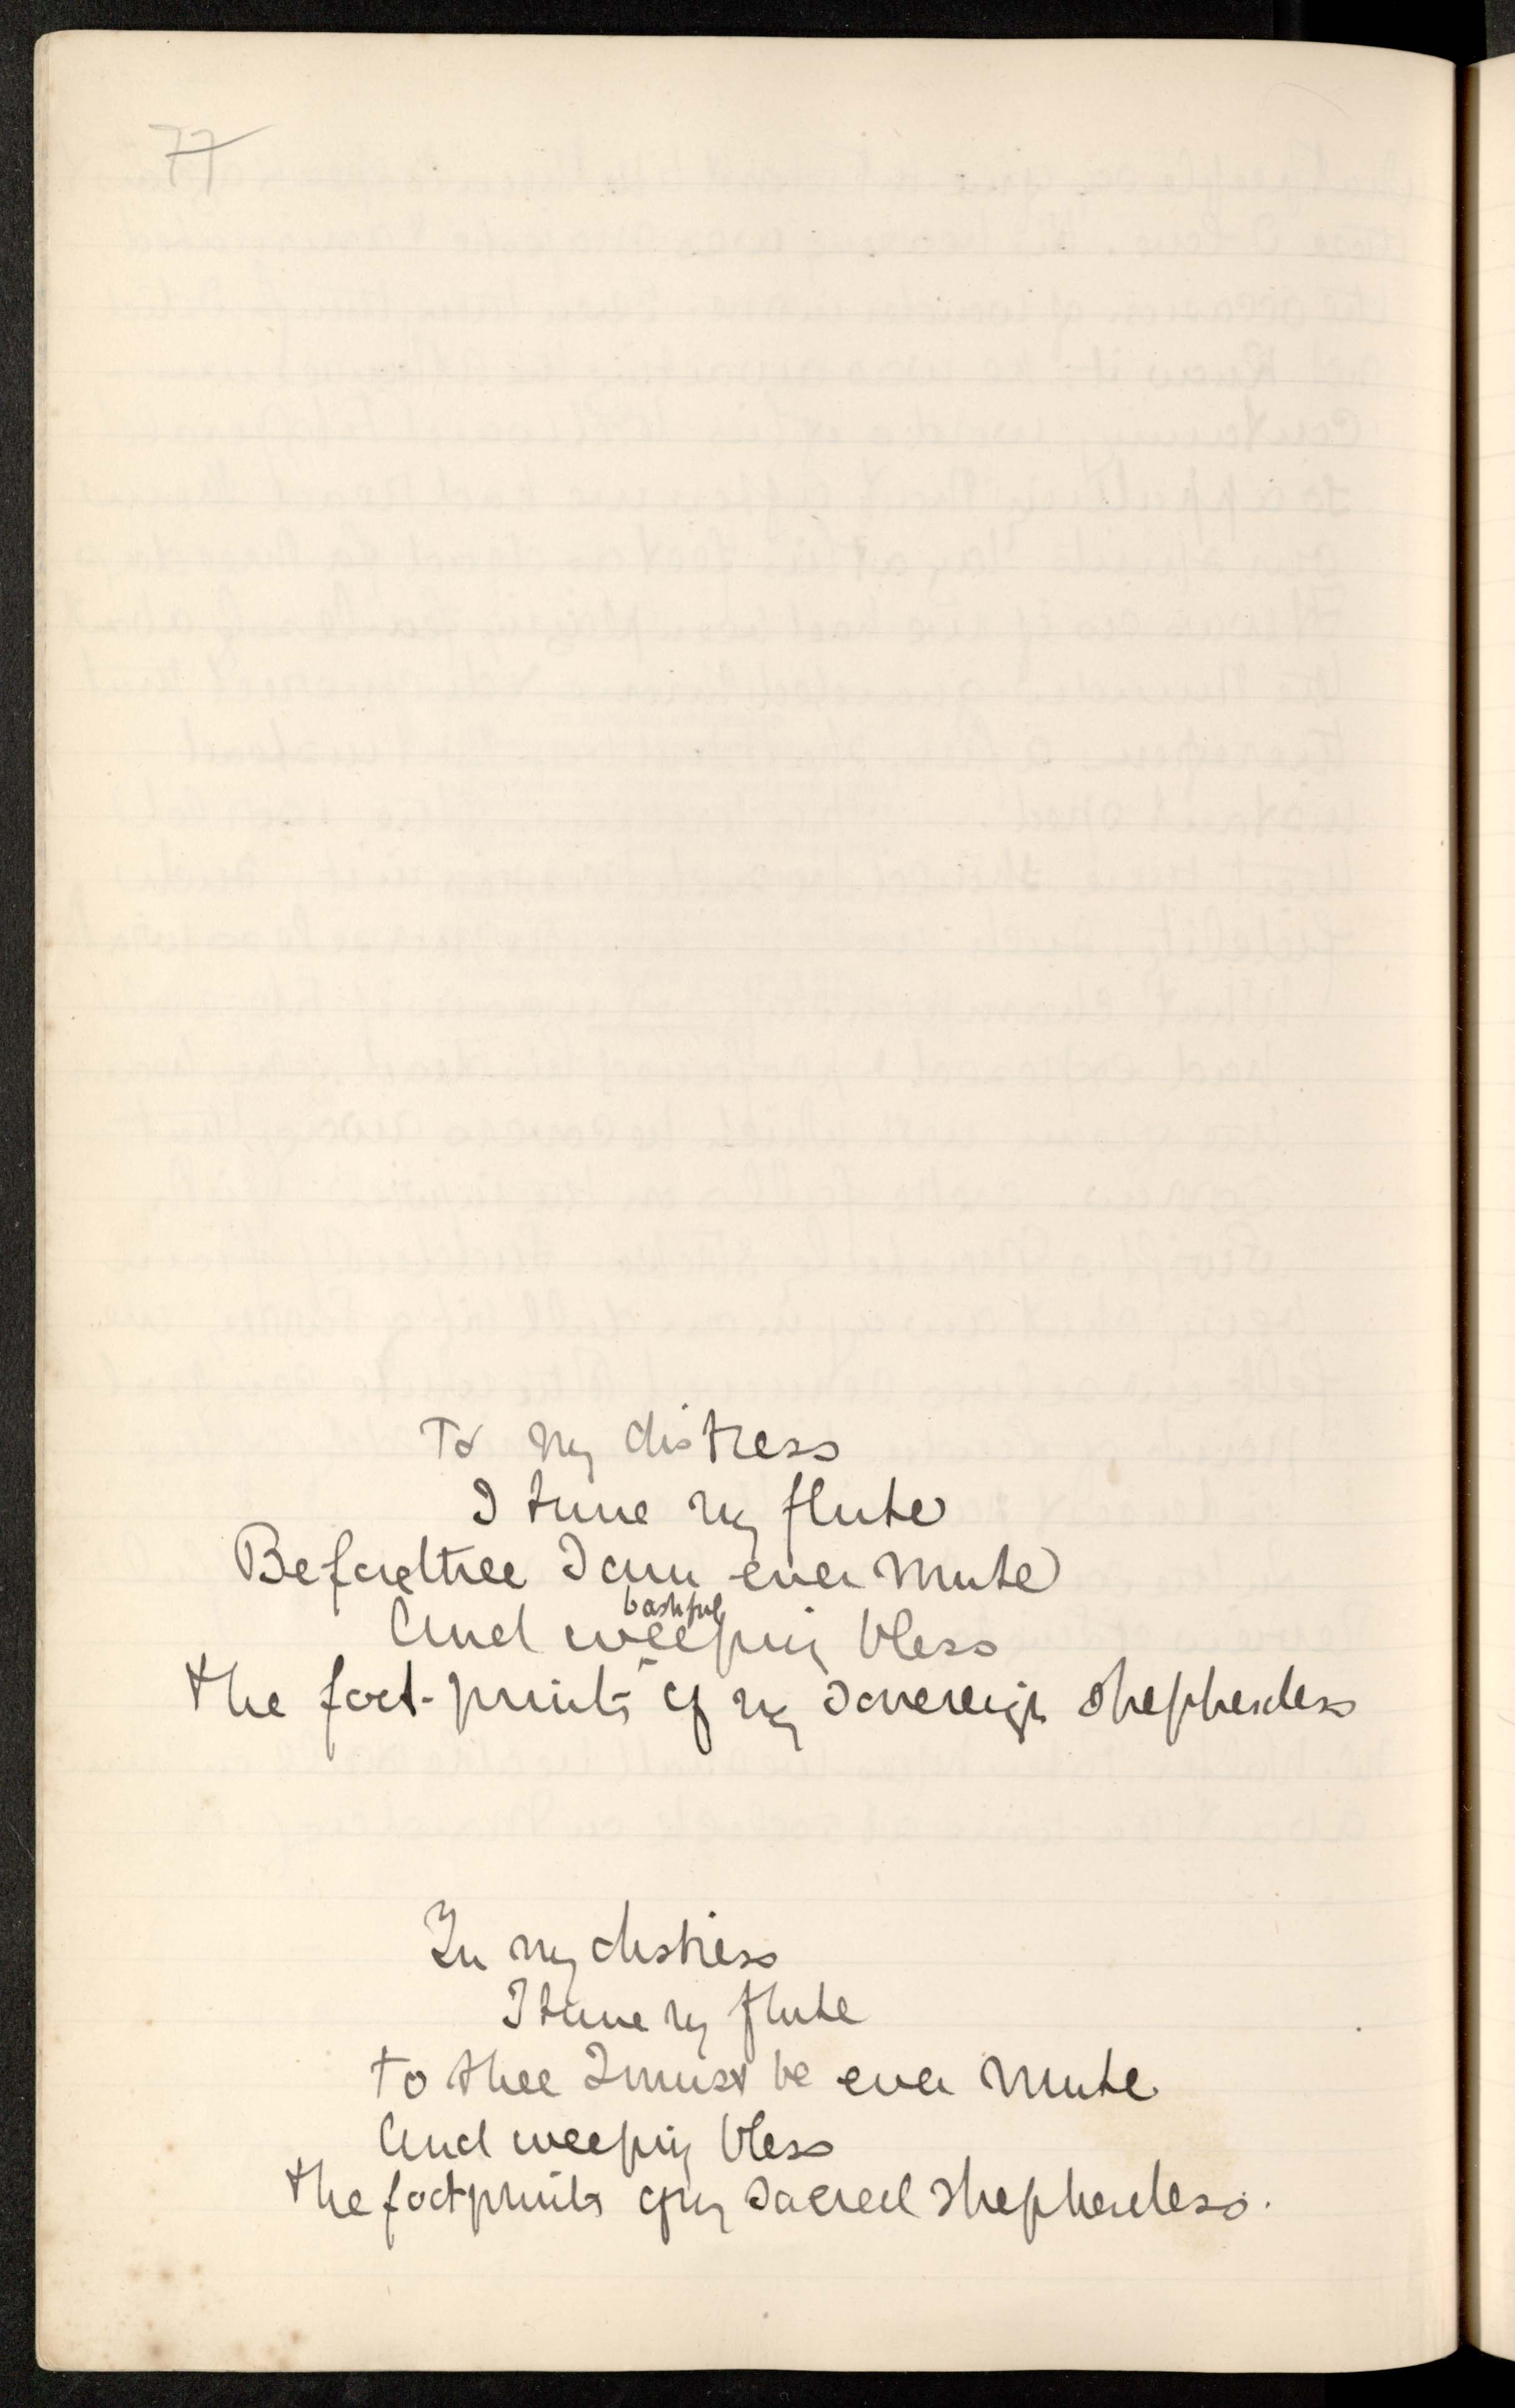 77
To my distress
I tune my flute
Before thee I am ever mute
bashful
And weeping bless
the foot-prints of my sovereign shepherdess
In my distress
I tune my flute
to thee I must be ever mute
And weeping bless
the footprints of my sacred shepherdess.